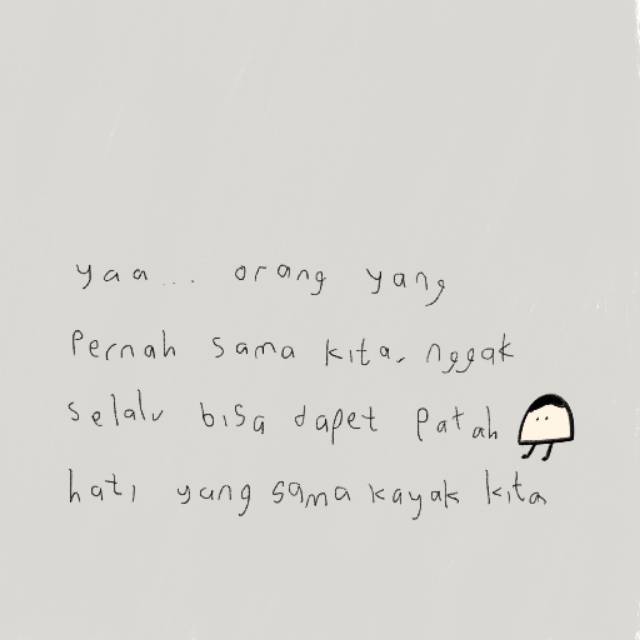 yaa... orang yang
Pernah sama kita, nggak
selalu bisa dapet patah
hati yang sama kayak kita